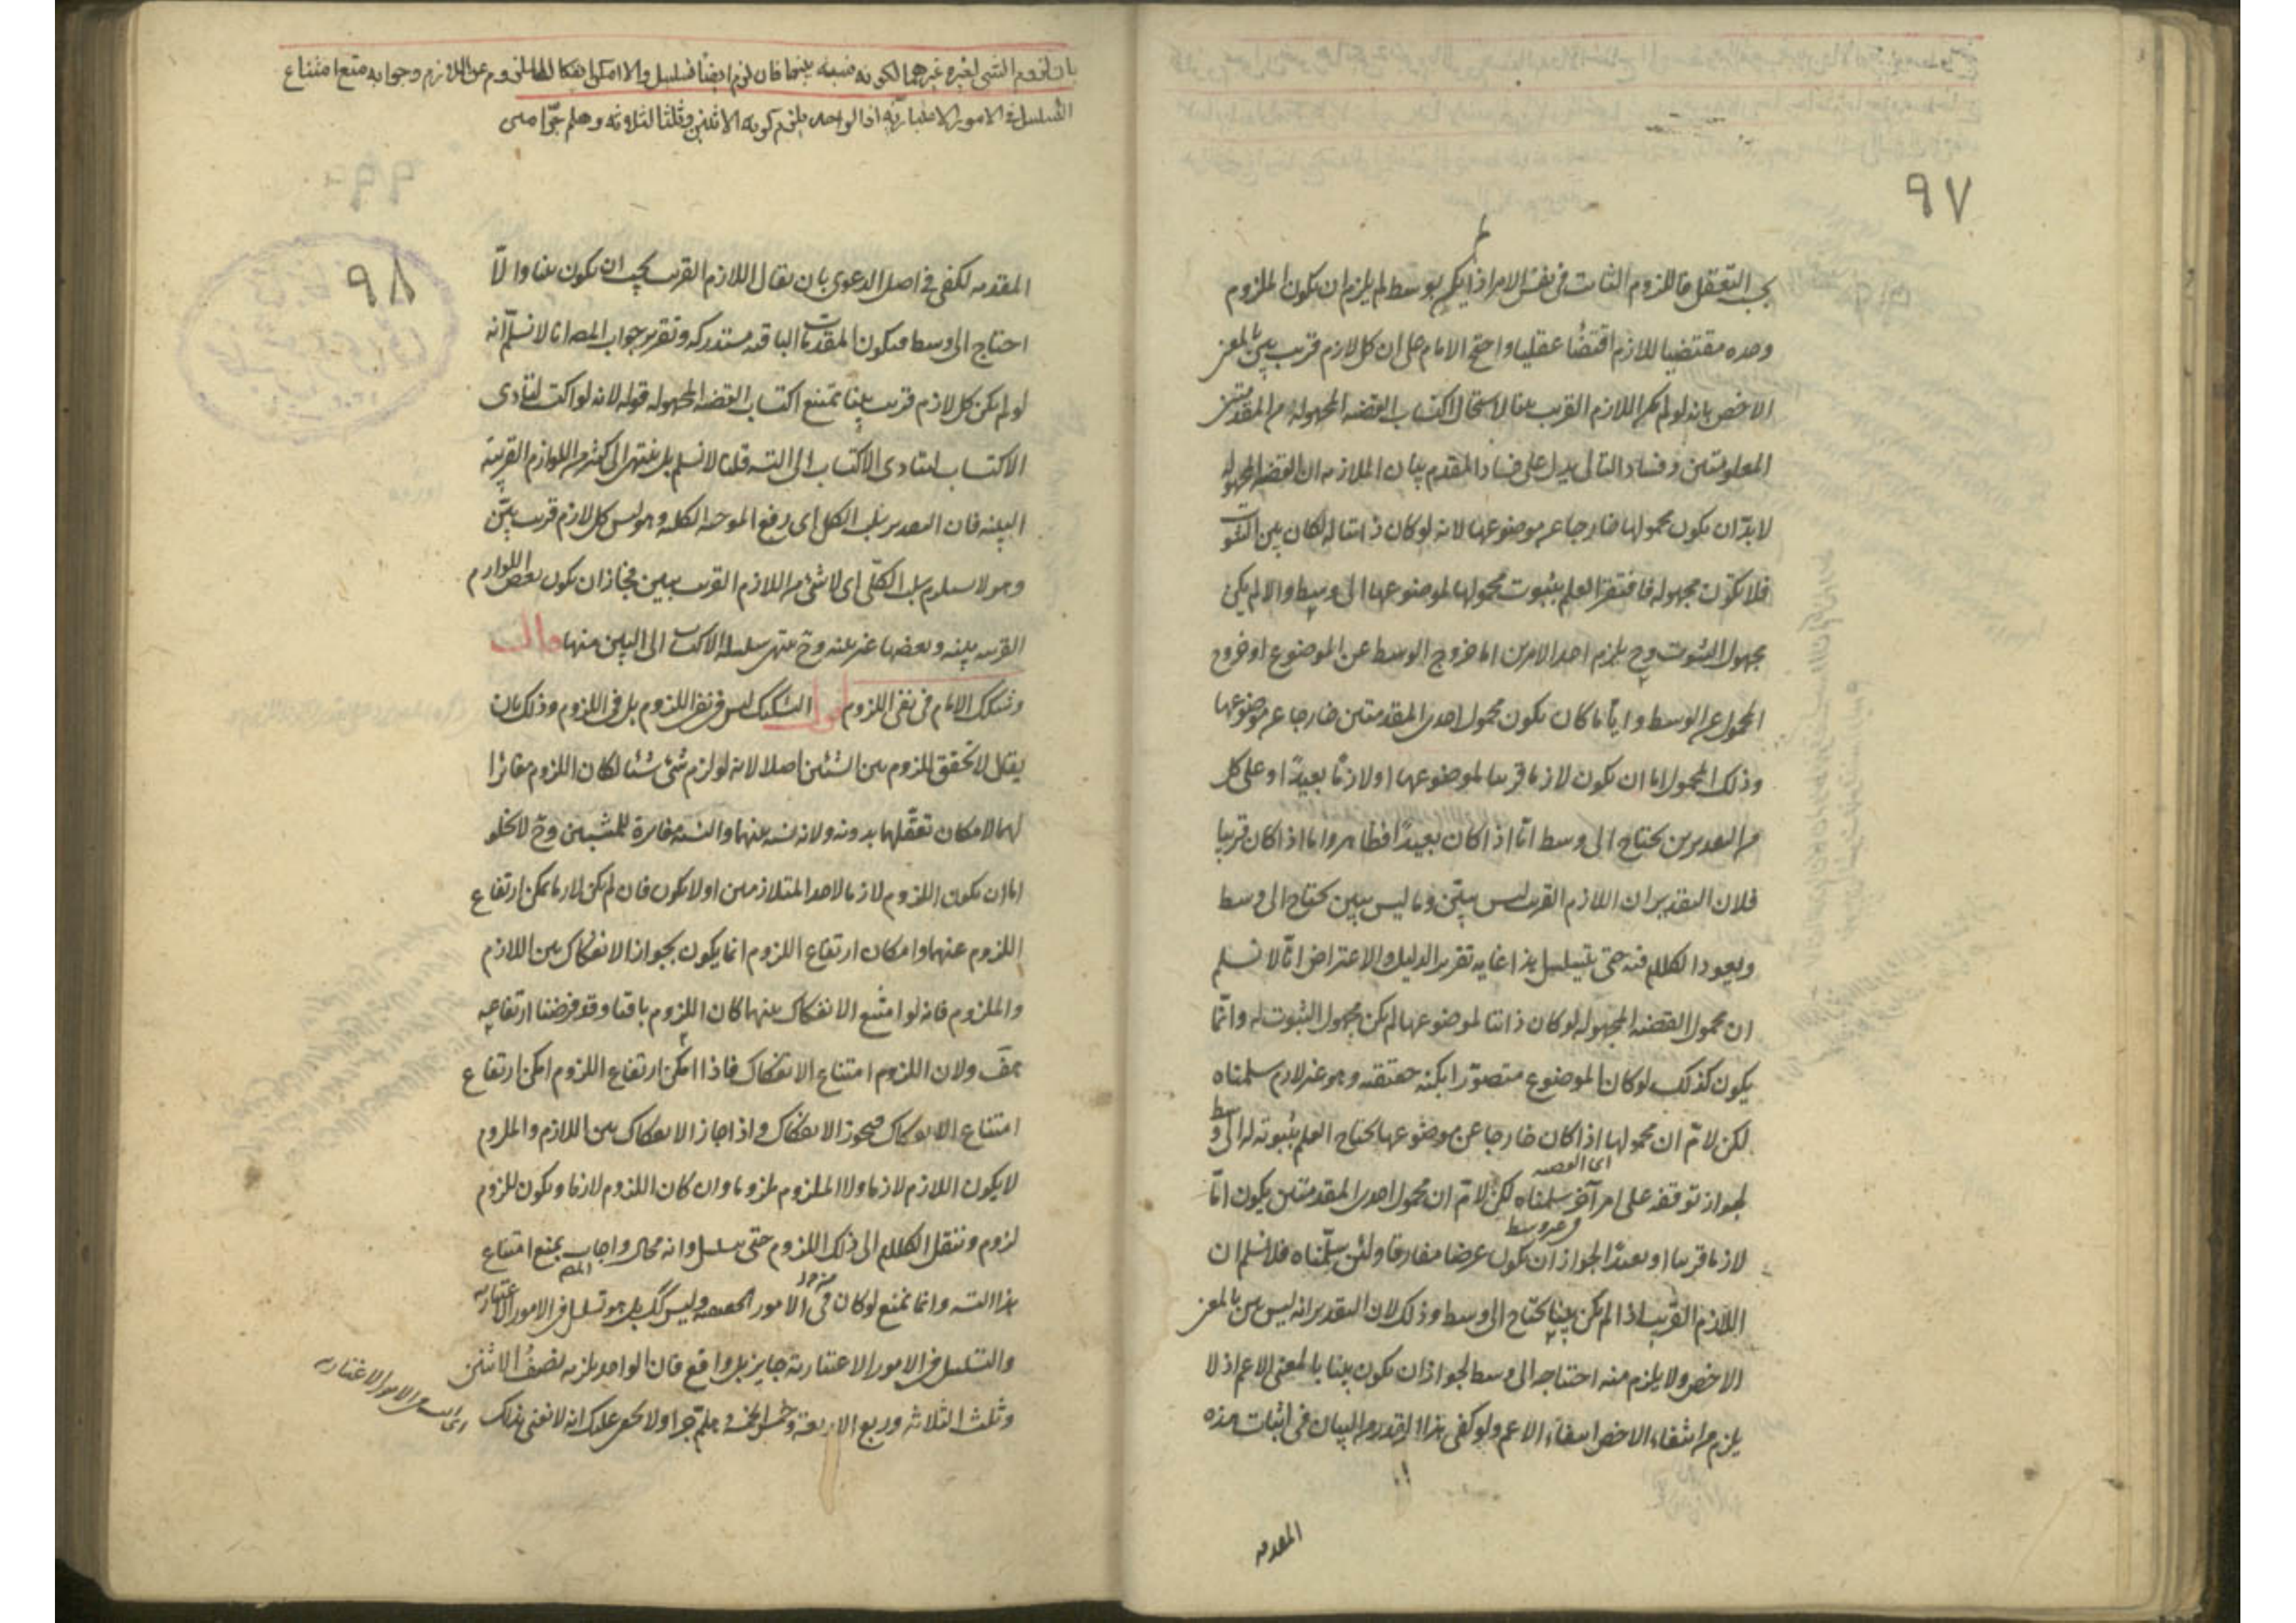 ٩٧
بحسب التعقل فاللزوم الثابت في نفس الامر اذا لم يكن بوسط لم يلزم ان يكون الملزوم
وحده مقتضيا للازم اقتضاء عقليا واحتج الامام على ان كل لازم قريب بيّن بالمعنى
الاخص بانه لو لم يكن اللازم القريب بينا لاستحال اكتساب القضية المجهولة من المقدمتين
المعلومتين وفساد التالي يدل على فساد المقدم بيان الملازمة ان القضية المجهولة
لا بدّ ان يكون محمولها خارجا عن موضوعها لانه لو كان ذاتيا له لكان بين الثبوت
فلا تكون مجهولة فافتقر العلم بثبوت محمولها لموضوعها الى وسط والا لم يكن
مجهول الثبوت وح يلزم احد الامرين اما خروج الوسط عن الموضوع او خروج
المحمول عن الوسط وايّا ما كان يكون محمول احدى المقدمتين خارجا عن موضوعها
وذلك المحمول اما ان يكون لازما قريبا لموضوعها او لازما بعيدًا وعلى كل
من التقديرين يحتاج الى وسط امّا اذا كان بعيدًا فظاهر واما اذا كان قريبا
فلان التقدير ان اللازم القريب ليس ببيّن وما ليس ببين يحتاج الى وسط
ويعود الكلام فيه حتى يتسلسل هذا غاية تقرير الدليل والاعتراض انّا لا نسلم
ان محمول القضية المجهولة لو كان ذاتيا لموضوعها لم يكن مجهول الثبوت له وانّما
يكون كذلك لو كان الموضوع متصوّرا بكنه حقيقته وهو غير لازم سلمناه
لكن لا نمّ ان محمولها اذا كان خارجا عن موضوعها يحتاج العلم بثبوته له الى وسط
لجواز توقفه على امر آخر سلمناه لكن لا نمّ ان محمول احدى المقدمتين يكون امّا
لازما قريبا او بعيدًا لجواز ان يكون عرضا مفارقا ولئن سلّمناه فلا نسلم ان
اللازم القريب اذا لم يكن بينا يحتاج الى وسط وذلك لان التقدير انه ليس ببين بالمعنى
الاخص ولا يلزم منه احتياجه الى وسط لجواز ان يكون بينا بالمعنى الاعم اذ لا
يلزم من انتفاء الاخص انتفاء الاعم ولو كفى هذا القدر من البيان في اثبات هذه
المقدمه
بان لزوم الشي لغيره غيرهما لكونه نسبة بينهما فان لزم ايضا تسلسل والا امكن انفكاك الملزوم عن اللازم وجوابه منع امتناع
التسلسل في الامور الاعتبارية اذ الواحد يلزم كونه الاثنين وثلث الثلاثة وهلم جرّا
٩٨
المقدمه لكفى في اصل الدعوى بان يقال اللازم القريب يجب ان يكون بينا والّا
احتاج الى وسط فيكون المقدمات الباقيه مستدركه وتقرير جواب المصـ انا لا نسلّم انه
لو لم يكن كل لازم قريب بينا يمتنع اكتساب القضيه المجهوله قوله لانه لو اكتسب لتادى
الاكتساب الى التسـ قلنا لا نسلم بل ينتهى الى كثير من اللوازم القريبة
البينه فان التقدير سلب الكل اى رفع الموجبه الكليه وهو ليس كل لازم قريب ببيّن
وهو لا يستلزم سلب الكلّى اى لا شئ من اللازم القريب ببين فجاز ان يكون بعض اللوازم
القريبه بينه وبعضها غير بينه وح ينتهى سلسله الاكتساب الى البين منها قال
وشكك الامام في نفى اللزوم اقول التشكيك ليس في نفى اللزوم بل في اللزوم وذلك بان
يقال لا تحقق للزوم بين الشيئين اصلا لانه لو لزم شئ شيئا لكان اللزوم مغايرا
لهما لامكان تعقّلهما بدونه ولانه نسبه بينهما والنسبه مغايرة للمنتسبين وح لا يخلو
اما ان يكون اللزوم لازما لاحد المتلازمين او لا يكون فان لم يكن لازما يمكن ارتفاع
اللزوم عنهما وامكان ارتفاع اللزوم انما يكون بجواز الانفكاك بين اللازم
والملزوم فانه لو امتنع الانفكاك بينهما كان اللزوم باقيا وقد فرضنا ارتفاعه
هف ولان اللزوم امتناع الانفكاك فاذا امكن ارتفاع اللزوم امكن ارتفاع
امتناع الانفكاك فيجوز الانفكاك واذا جاز الانفكاك بين اللازم والملزوم
لا يكون اللازم لازما ولا الملزوم ملزوما وان كان اللزوم لازما ويكون للزوم
لزوم وننقل الكلام الى ذلك اللزوم حتى يتسلسل وانه محال واجاب المصـ بمنع امتناع
هذا التسـ وانما يمتنع لو كان في الامور الحقيقيه وليس كك بل هو تسلسل في الامور الاعتباريه
والتسلسل في الامور الاعتبارية جايز بل واقع فان الواحد يلزمه نصف الاثنين
وثلث الثلاثه وربع الاربعة وخمس الخمسه وهلم جرّا ولا يخفى عليك انه لا نعنى بذلك